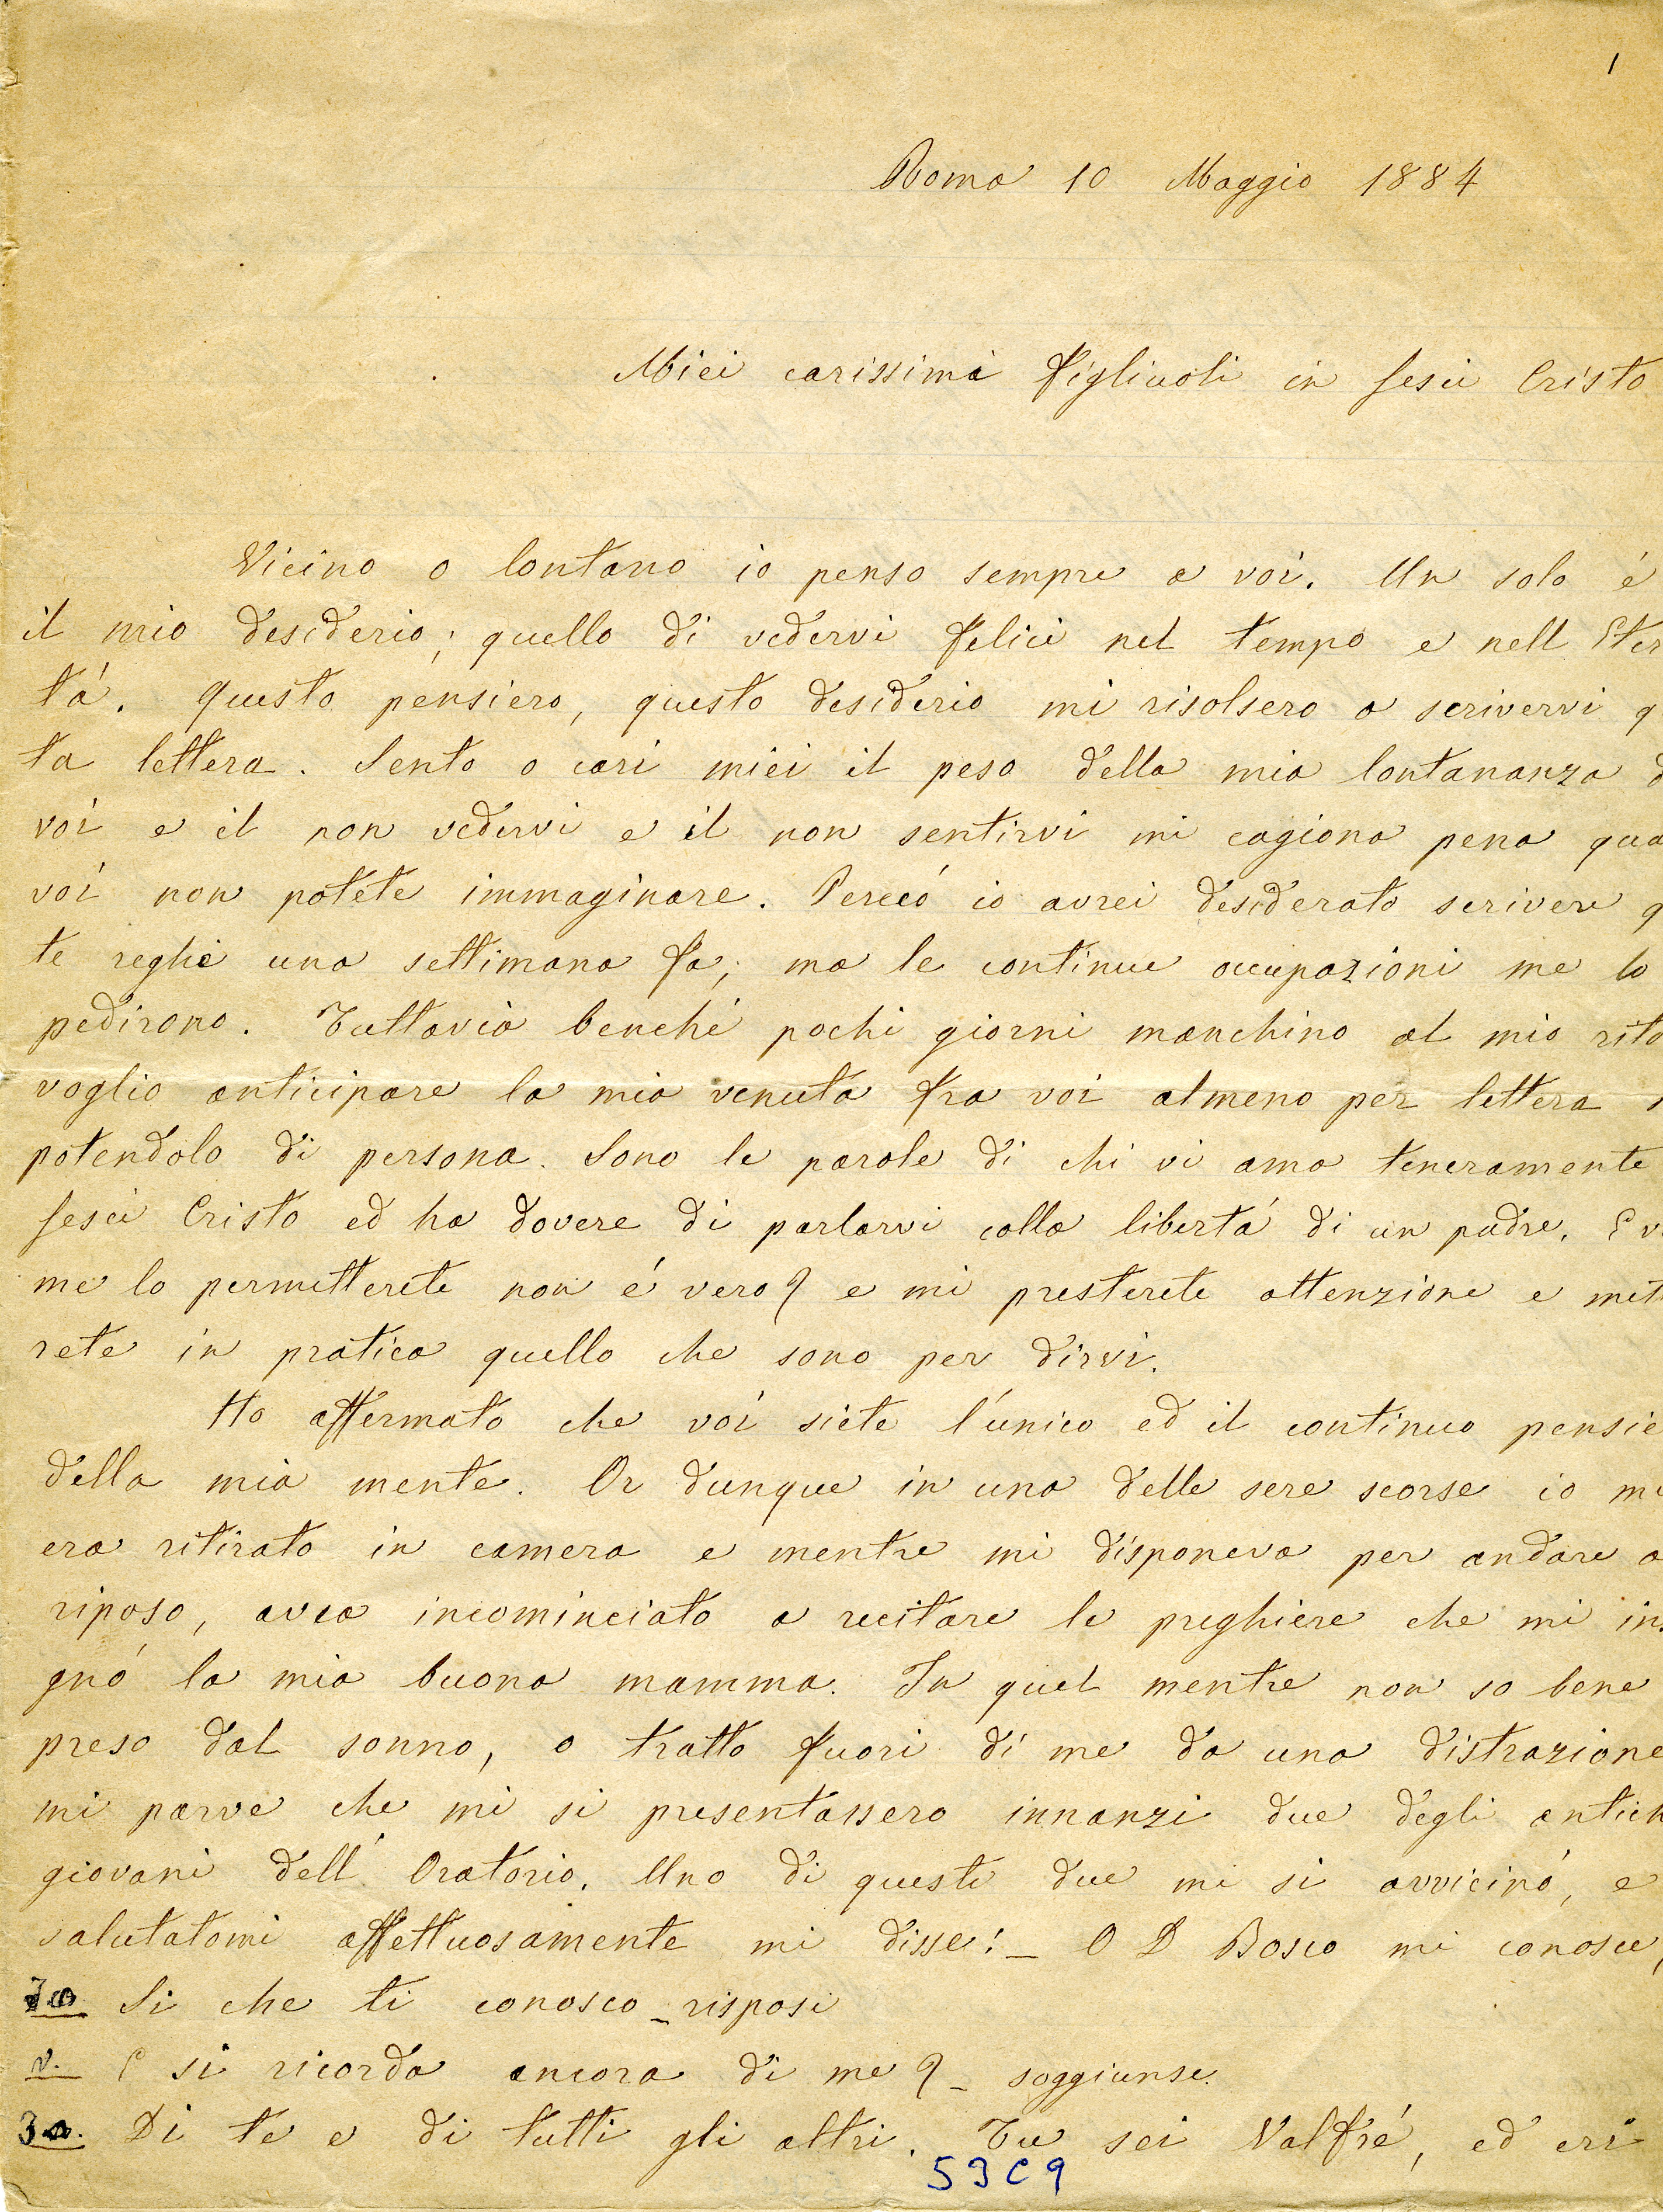 1
Roma 10 Maggio 1884
Miei carissimi figliuoli in Gesù Cristo
Vicino o lontano io penso sempre a voi. Un solo é
il mio desiderio; quello di vedervi felici nel tempo e nell Eter
tá. Questo pensiero, questo desiderio mi risolsero a scrivervi q
ta lettera. Sento o cari miei il peso della mia lontananza d
voi e il non vedervi e il non sentirvi mi cagiona pena qua
voi non potete immaginare. Perció io avrei desiderato scrivere q
te reghe una settimana fa; ma le continue occupazioni me lo
pedirono. Tuttavia benché pochi giorni manchino al mio rito
voglio anticipare la mia venuta fra voi almeno per lettera
potendolo di persona. Sono le parole di chi vi ama teneramente
Gesù Cristo ed ha dovere di parlarvi colla libertá di un padre. E v
me lo permetterete non é vero? e mi presterete attenzione e mett
rete in pratica quello che sono per dirvi.
Ho affermato che voi siete l'unico ed il continuo pensie
della mia mente. Or dunque in una delle sere scorse io mi
era ritirato in camera e mentre mi disponeva per andare a
riposo, avea incominciato a recitare le preghiere che mi inse
gnó la mia buona mamma. In quel mentre non so bene
preso dal sonno, o tratto fuori di me da una distrazione
mi parve che mi si presentassero innanzi due degli antich
giovani dell' Oratorio. Uno di questi due mi si avvicinó, e
salutatomi affettuosamente mi disse: _ O D Bosco mi conosce,
Si che ti conosco _ risposi
V. E si ricorda ancora di me? _ soggiunse.
Di te e di tutti gli altri. Tu sei Valfré, ed eri
53C9